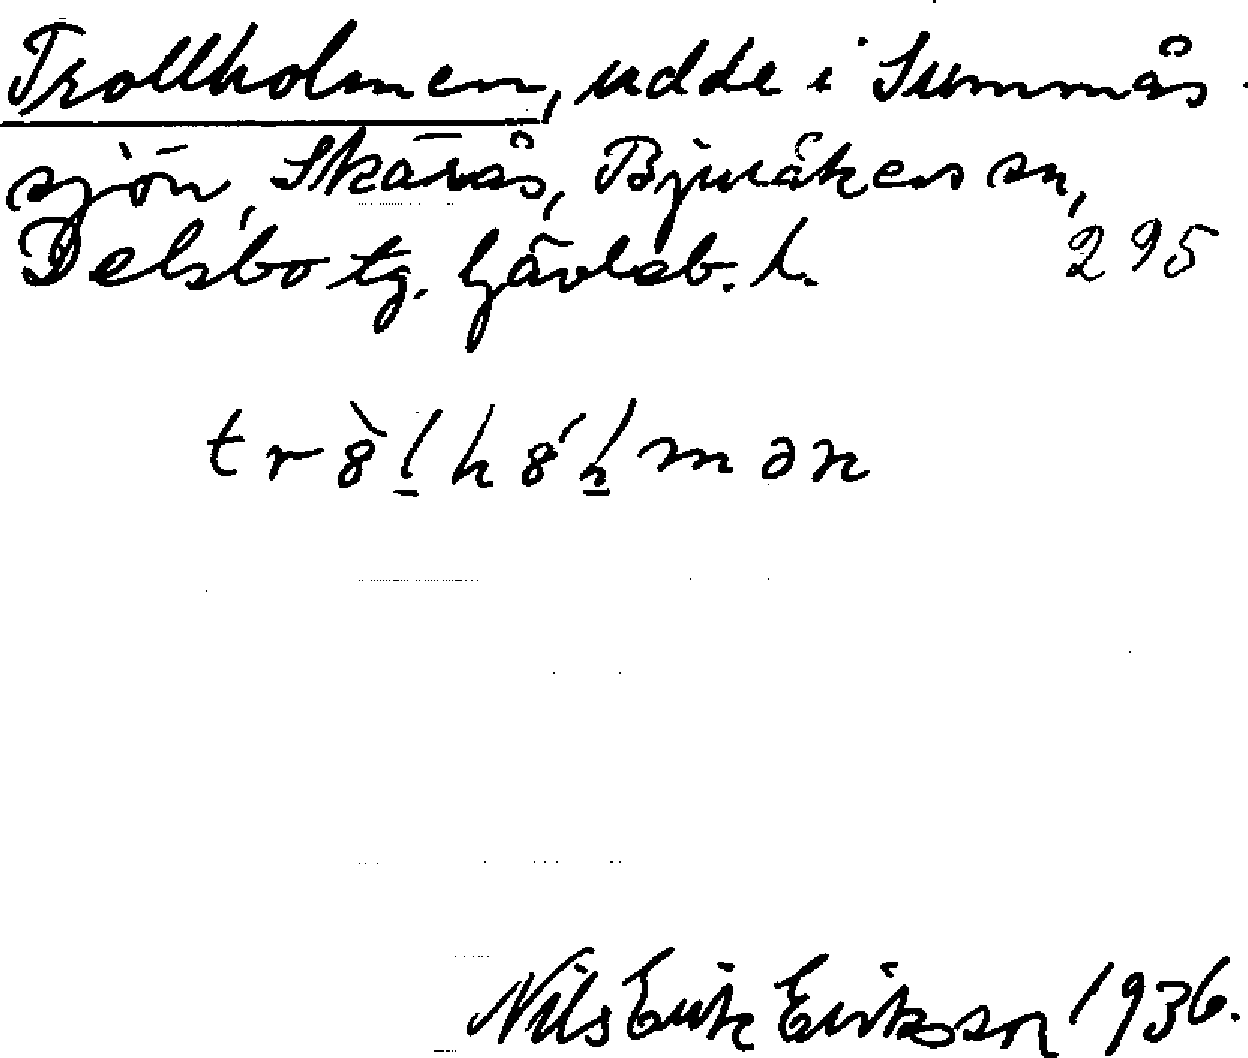 Trollholmen, udde i Summås-
sjön, Skärås, Bjuråkers sn,
Delsbo tg. Gävleb. l. 295
tr8̀lh8́lmən
Nils Erik Eriksson 1936.